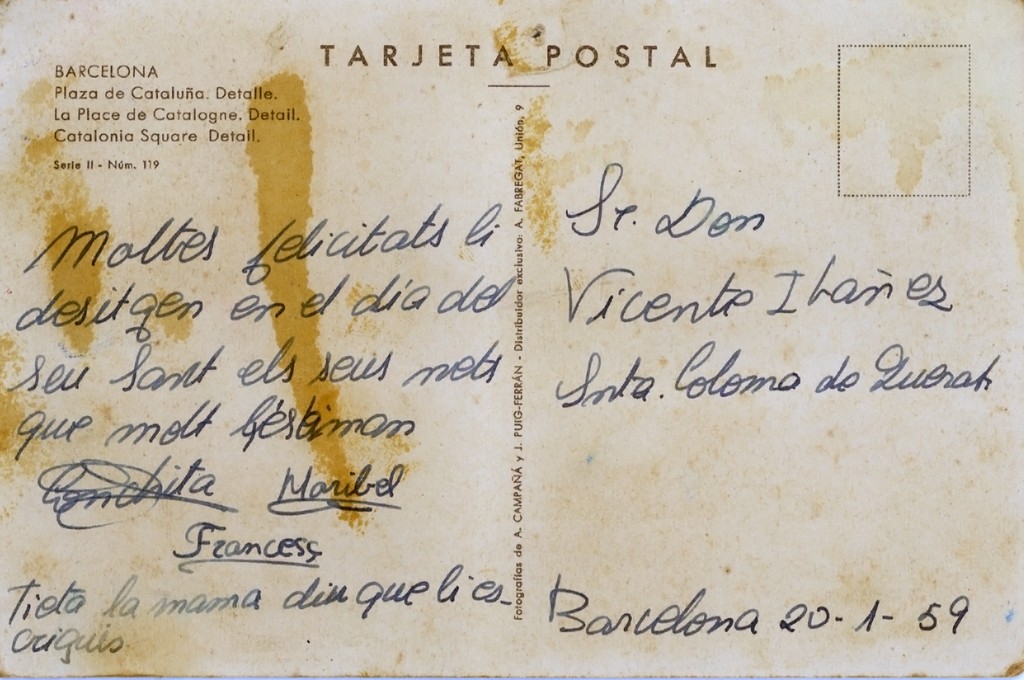 TARJETA POSTAL
BARCELONA
Plaza de Cataluña. Detalle.
La Place de Catalogne. Detail.
Catalonia Square Detail.
Serie II - Núm. 119
Moltes felicitats li
desitgen en el día del
seu Sant els seus nets
que molt l'estiman
Conchita Maribel
Francesç
Tieta la mama diu que li es-
criguis.
Fotografías de A. CAMPAÑÁ y J. PUIG-FERRÁN - Distribuidor exclusivo: A. FABREGAT, Unión, 9
Sr. Don
Vicente Ibañez
Snta. Coloma de Queralt
Barcelona 20-1-59